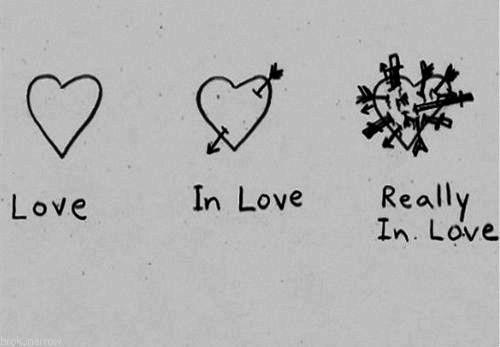 Love
In Love
Really
In. Love